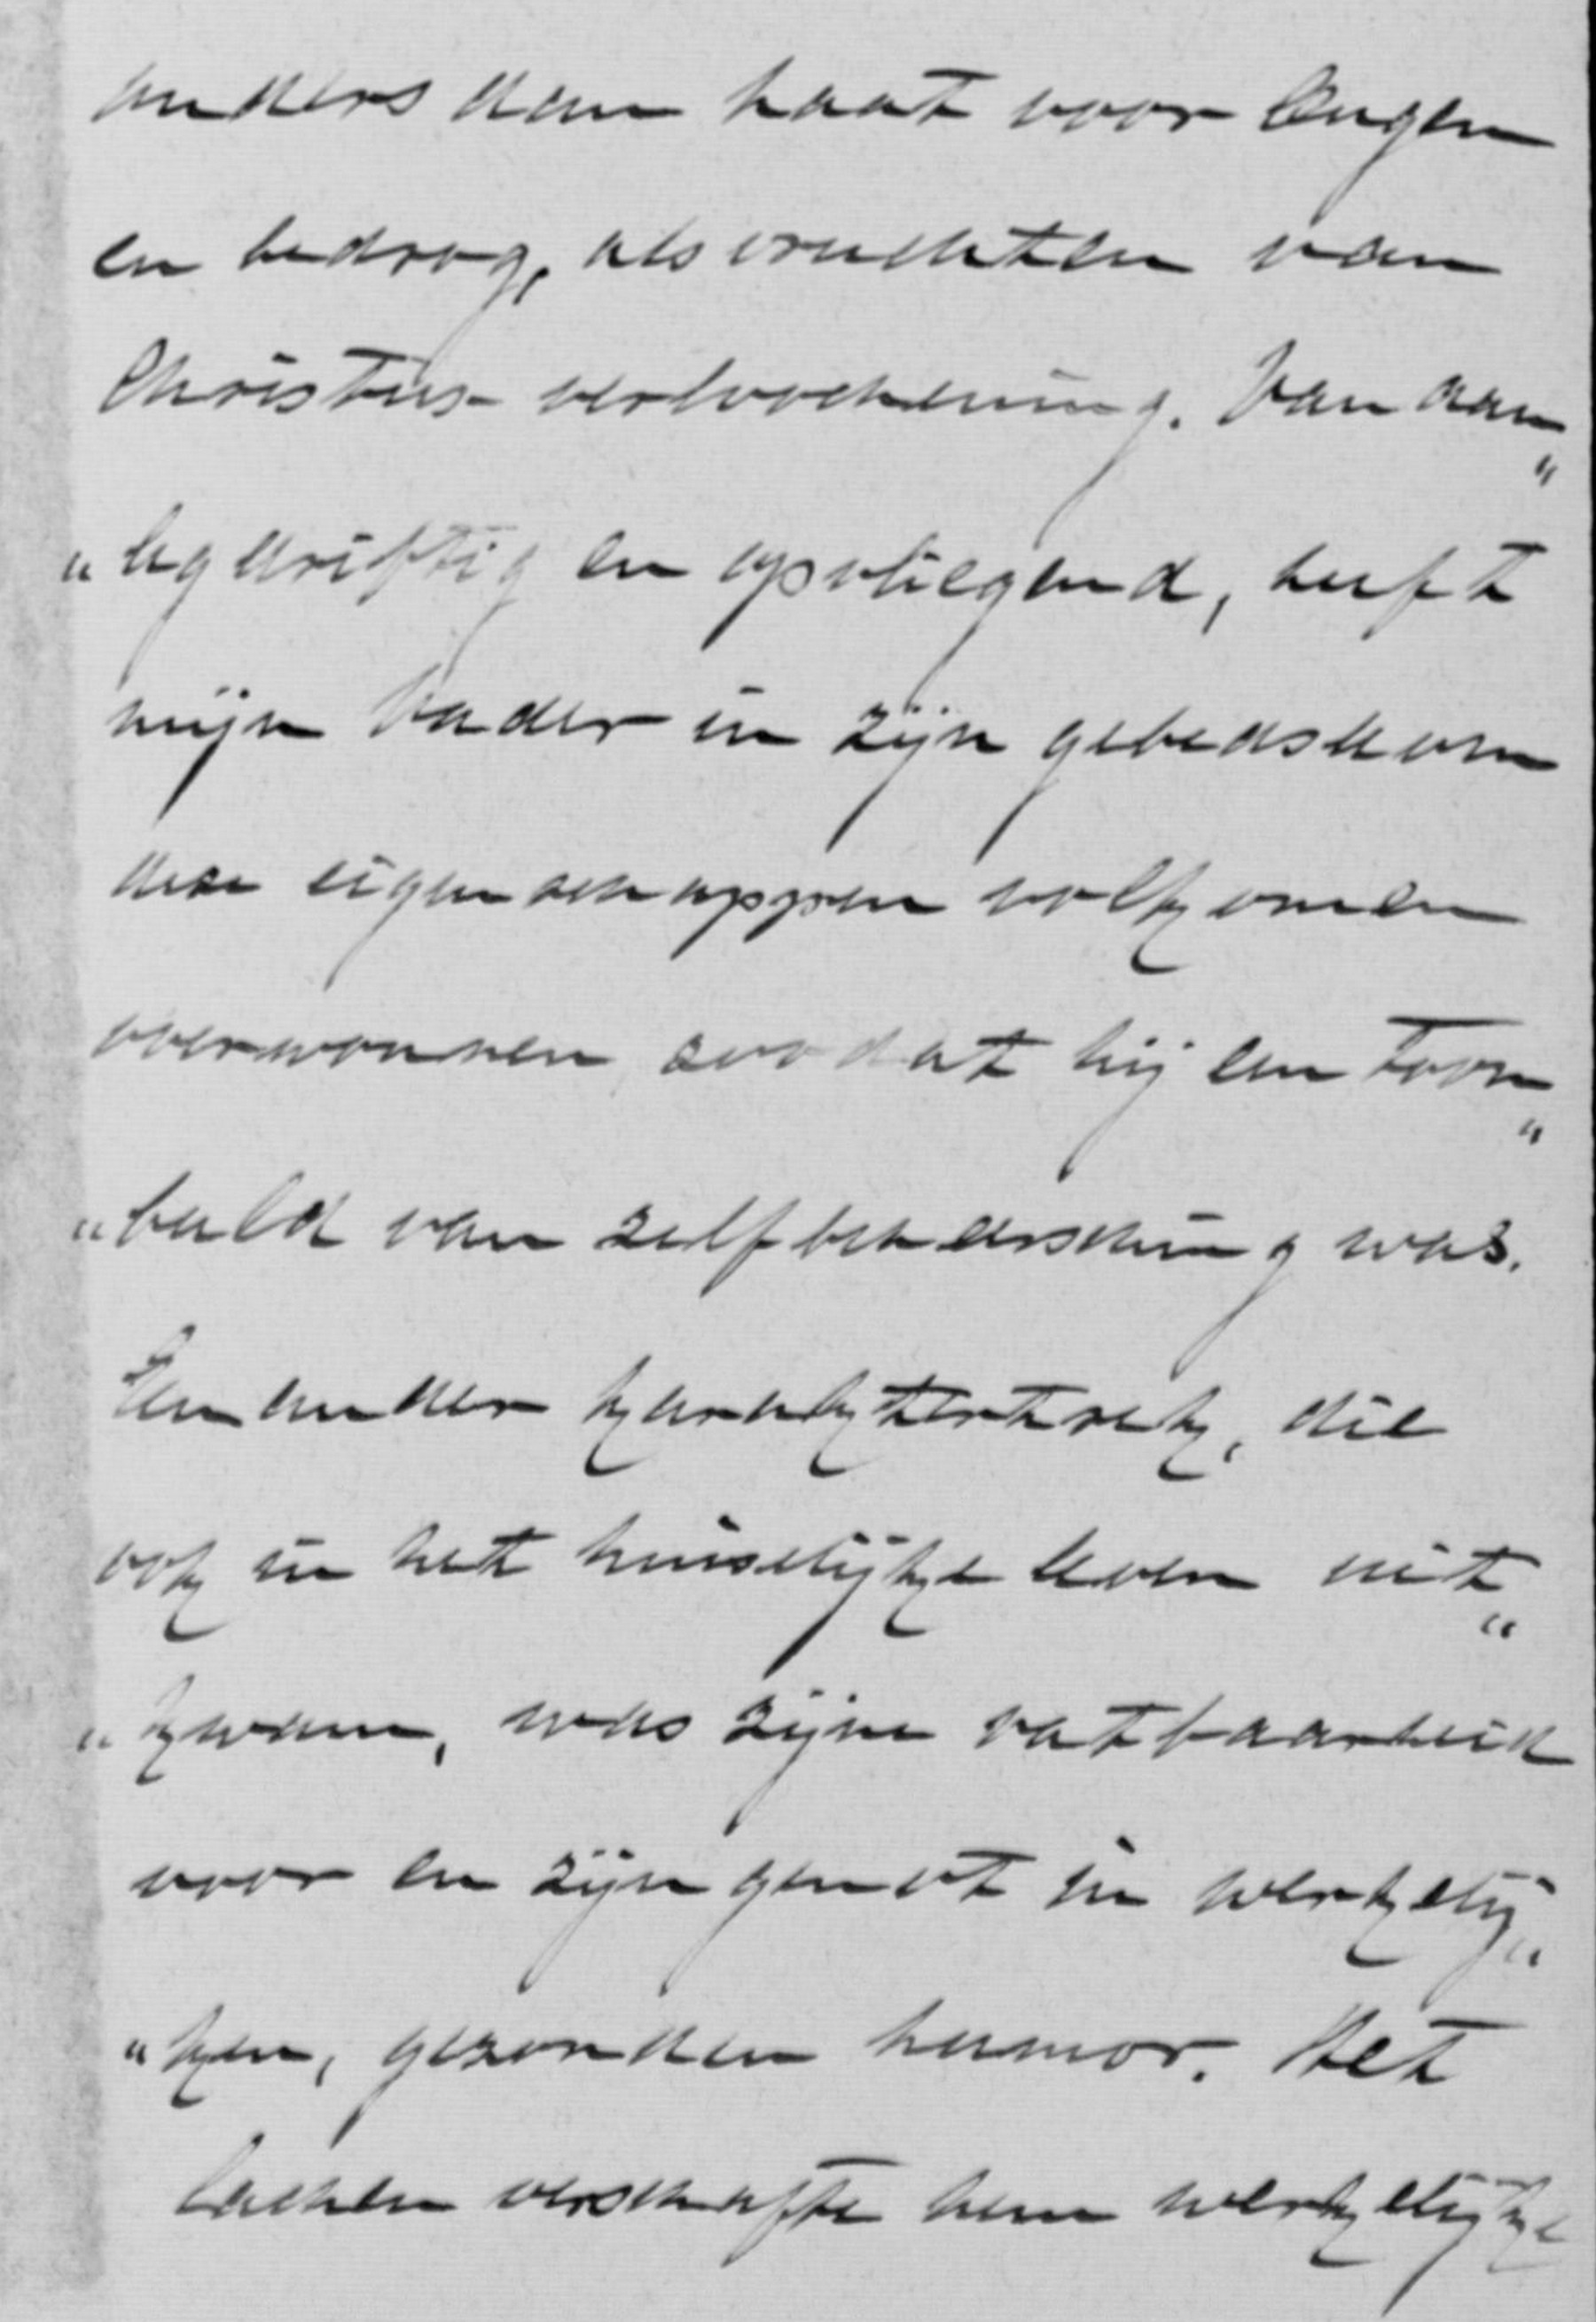 anders dan haat voor leugen
en bedrog, als vruchten van
Christus-verloochening. Van aan„
„leg driftig en opvliegend, heeft
mijn Vader in zijn gebedsleven
deze eigenschappen volkomen
overwonnen zoodat hij een toon„
„beeld van zelfbeheersching was.
Een ander karaktertrek, die
ook in het huiselijke leven uit„
„kwam, was zijne vatbaarheid
voor en zijn genot in werkelij„
„ken, gezonden humor. Het
lachen verschafte hem werkelijke